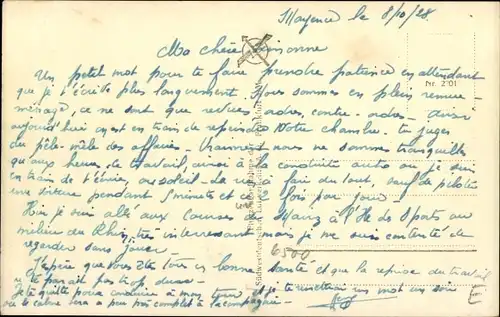 Mayence le 8/10/28
Ma chère
Un petit mot pour te faire prendre patience en attendant
que je t'écrive plus longuement. Nous sommes en plein remue-
ménage, ce ne sont que ordres, contre-ordres. Aussi
aujourd'hui on est en train de repeindre notre chambre. tu juges
du pêle-mêle des affaires. Vraiment nous ne sommes tranquilles
qu'aux heures de travail, aussi à la conduite auto où je suis
en train de t'écrire, au soleil. La rien à faire du tout, sauf de piloter
une voiture pendant 5 minutes et ce fois par jour
Hier je suis allé aux courses à l'Ile de Sports au
milieu du Rhin, très intéressant mais je me suis contenté de
regarder sans jouer.
J'espère que vous êtes tous en bonne santé et que la reprise du travail
ne te paraît pas trop dure.
Je te quitte pour conduire à mon tour et je te remettrai un mot ce soir
où le calme sera à peu près complet à la compagnie.
Nr. 201
6500
E